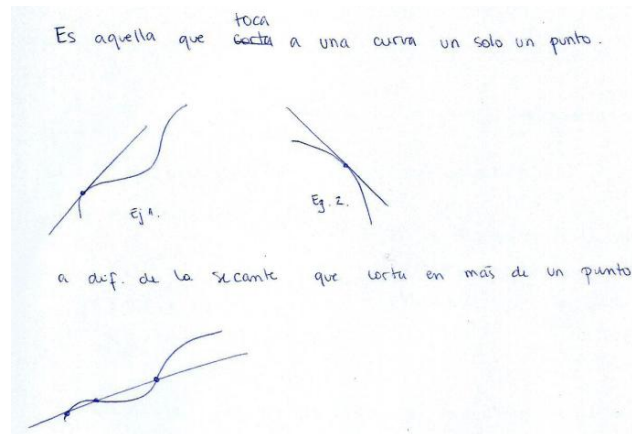 toca
Es aquella que corta a una curva un solo un punto.
Ej 1.
Eg. 2.
a dif. de la secante que corta en más de un punto